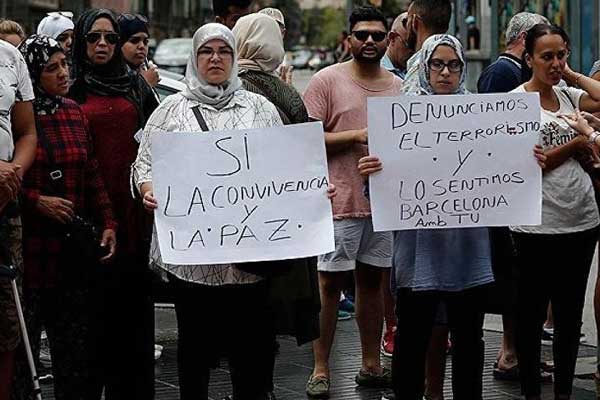 SI
LA CONVIVENCIA
Y
LA PAZ.
DENUNCIAMOS
EL TERRORISMO
Y
LO SENTIMOS
BARCELONA
AMB TU